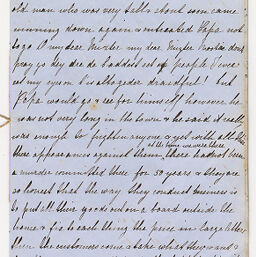 old man who was very talk about soon came
running down again & entreated Papa not
to go O my dear Mister my dear Mister don't
pray go dey are de baddest set of people I ever
set my eyes on 'tis altogeder dreadful! but
Papa would go & see for himself however he
was not very long in the town & he said it really
was enough to frighten anyone & yet with all
there appearances against them, there had not been
at the time we were there
a murder committed there for 50 years & they are
so honest that the way they conduct business is
to put all their goods out on a board outside the
house & fix to each thing the price in large letters
then the customers come & take what they want &